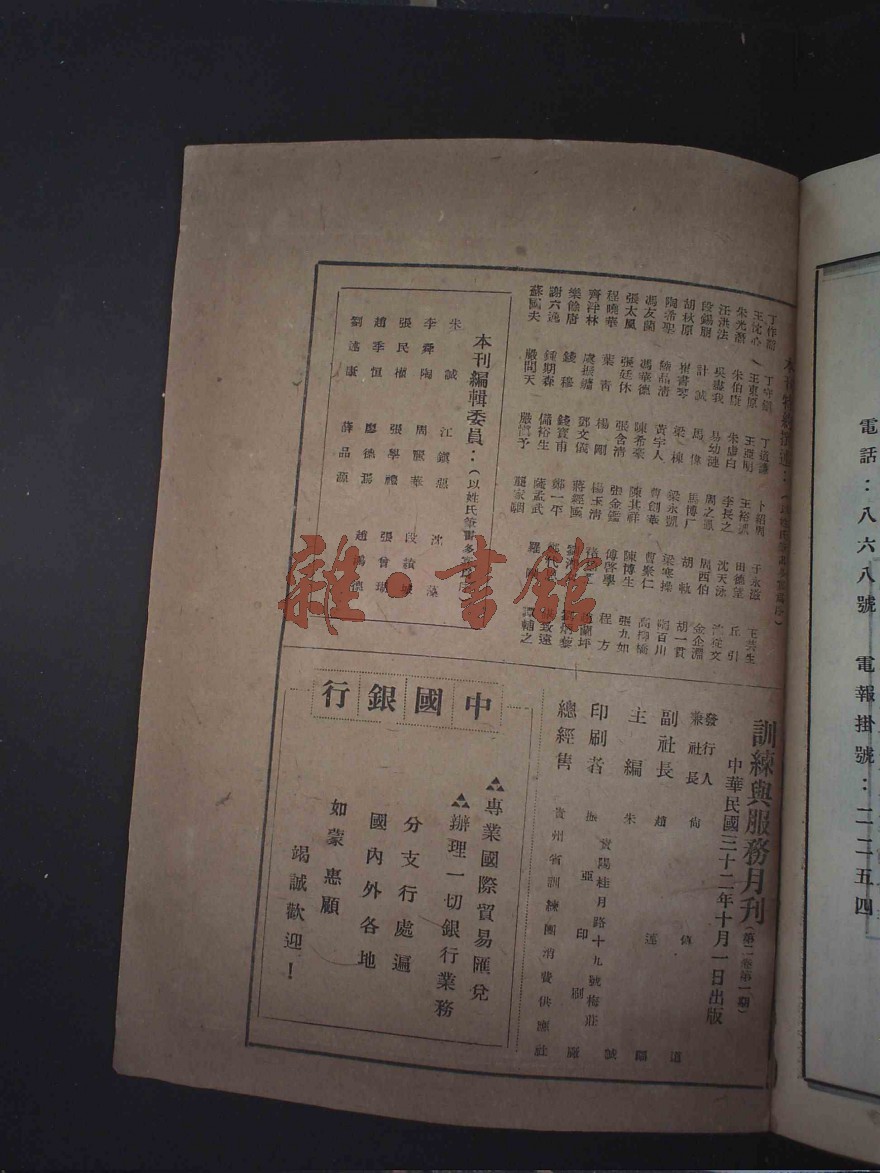 電話：八六八號　電報掛號：二二五四
丁作韶　丁守𤩽　丁道謙　卜紹周　于永滋　王芸生
王沈心　王東原　王亞明　王裕凱　田德望　丘引
朱光潛　朱伯康　朱虛白　李長之　沈天泳　沈從文
汪洪法　吳澤我　易幼漣　周之風　周西伯　金企淵
段錫朋　計誠　馬偉　馬博厂　胡軌　胡一貫
胡秋原　崔書琴　梁棟　梁永凱　梁寒操　陶百川
陶希聖　陳品清　黃宇人　曹創華　曹聚仁　高柳橋
馮友蘭　馮華德　陳希豪　陳其祥　陳博生　張九如
張太風　張廷休　張含清　張金鑑　傅啓學　程方
程曉華　葉青　楊剛　楊玉清
齊泮林　虞振鏞　鄧文儀　蔣經國　趙蘭坪
樂餘唐　錢穆　錢實甫　鄭一平
謝六逸　鍾期森　儲裕生　薩孟武　致遠
蘇國夫　嚴問天　嚴慎予　羅家頤　譚輔之
本刊編輯委員：（以姓氏筆畫多寡為序）
朱誠　江鎮　沈
李舜陶　周觀華　段
張民權　張學禮　張曾
趙季恒　廖德瑪　趙德
劉遙康　薛品源
訓練與服務月刊（第二卷第一期）
中華民國三十二年十月一日出版
發行人兼社長　尙傳道
副社長　趙運
主編　朱誠
印刷者　振亞印刷廠
貴陽桂月路十九號梅莊
總經售　貴州省訓練團消費供應社
中國銀行
專業國際貿易匯兌
辦理一切銀行業務
分支行處遍
國內外各地
如蒙惠顧
竭誠歡迎！
雜·書館